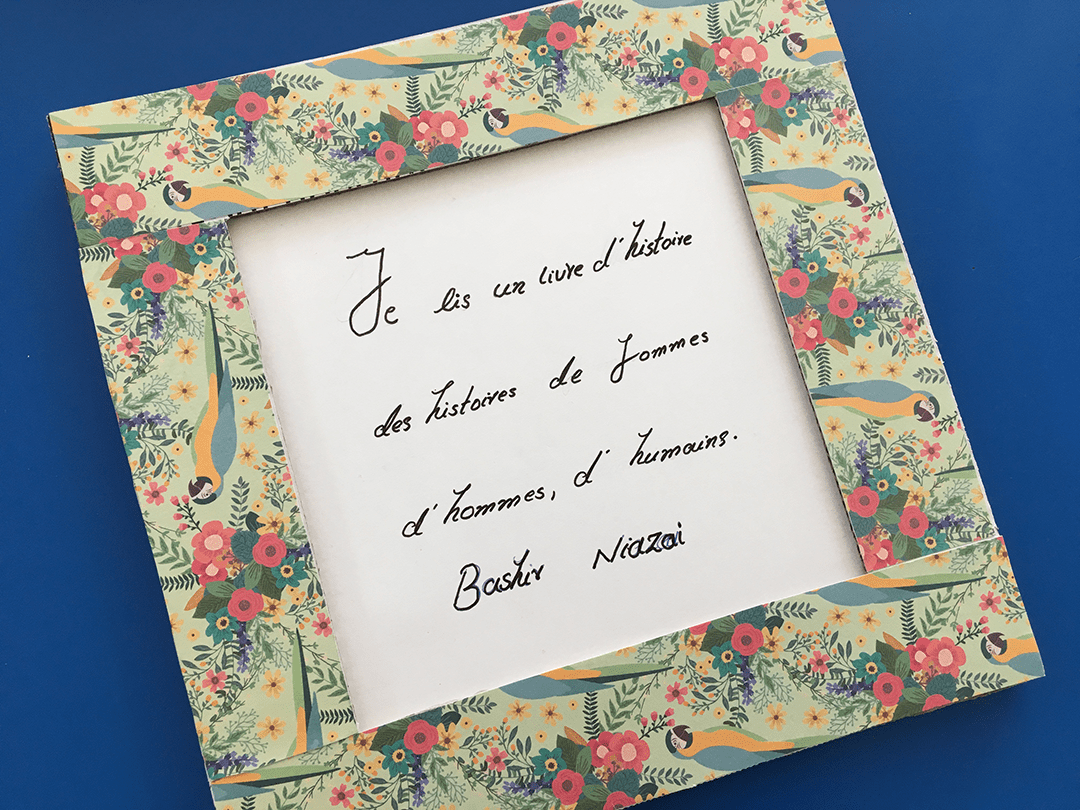 Je lis un livre d'histoire
des histoires de fommes
d'hommes, d'humains.
Bashir Niazai